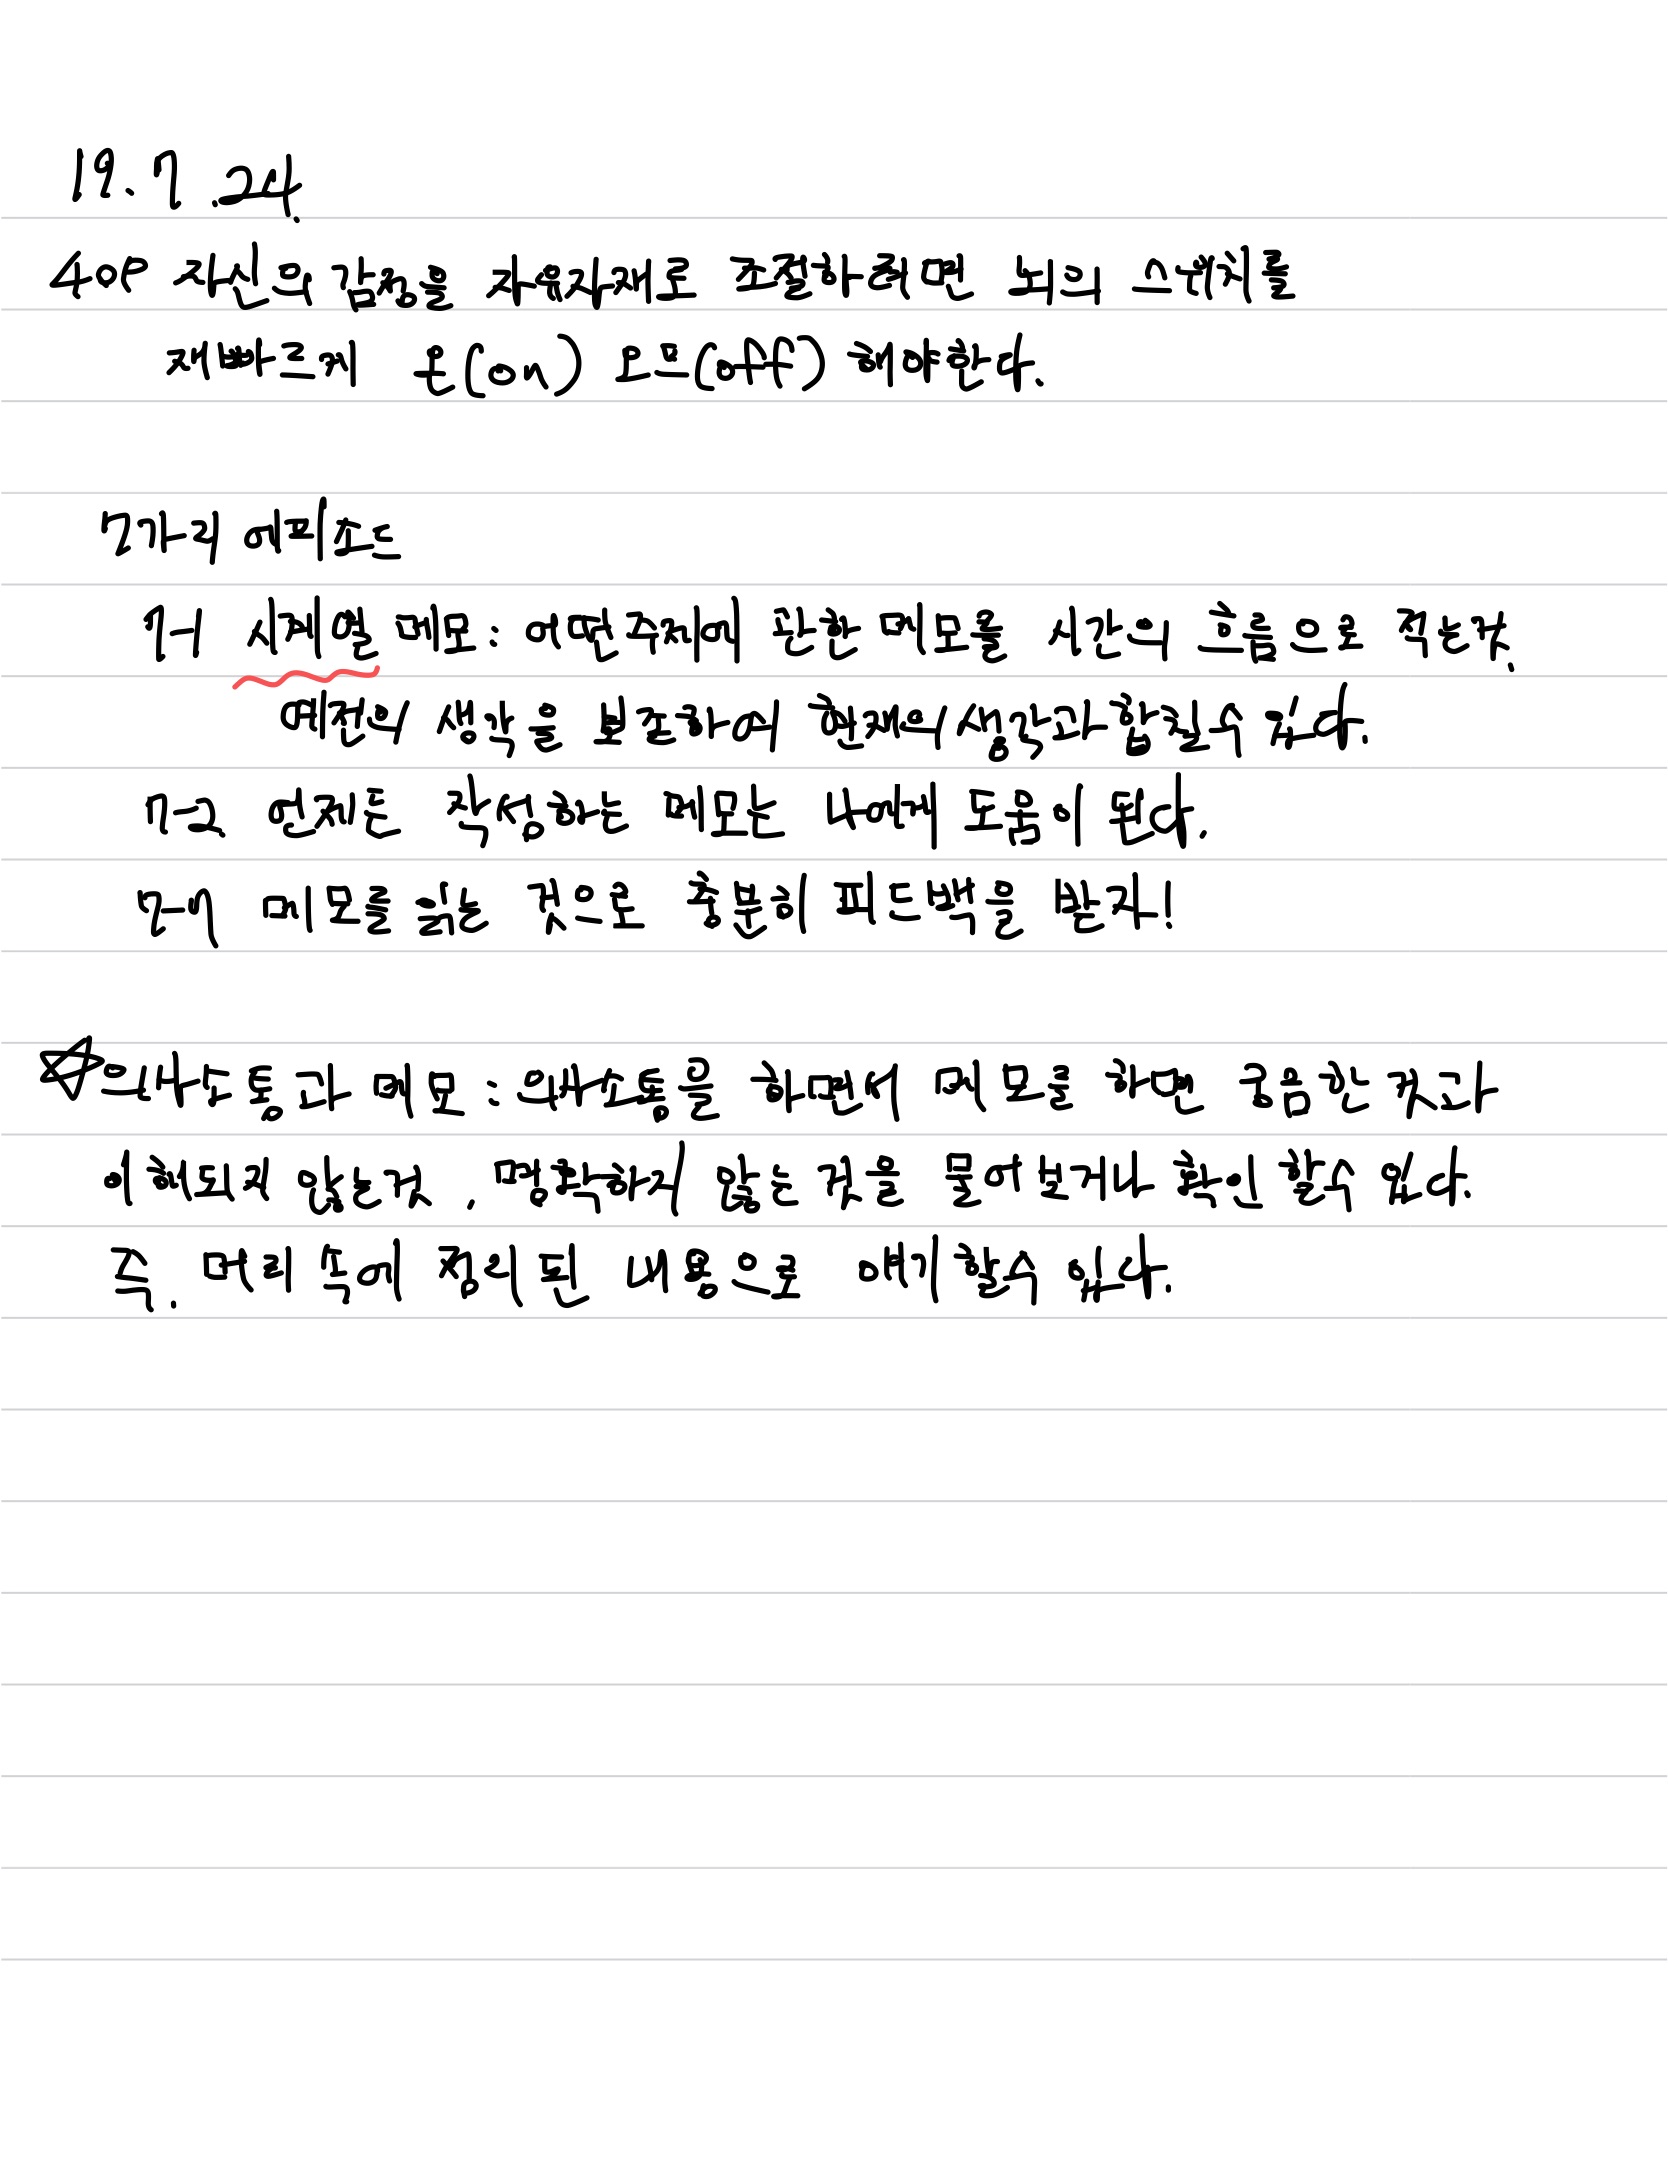 19.7.24.
40P 자신의 감정을 자유자재로 조절하려면 뇌의 스위치를
재빠르게 온(on) 오프(off) 해야한다.
7가지 에피소드
7-1 시계열 메모: 어떤주제에 관한 메모를 시간의 흐름으로 적는것.
예전의 생각을 보존하여 현재의 생각과 합칠수 있다.
7-2 언제든 작성하는 메모는 나에게 도움이 된다.
7-7 메모를 읽는 것으로 충분히 피드백을 받자!
☆의사소통과 메모: 의사소통을 하면서 메모를 하면 궁금한 것과
이해되지 않는것, 명확하지 않는 것을 물어보거나 확인 할수 있다.
즉. 머리 속에 정리된 내용으로 얘기할수 있다.